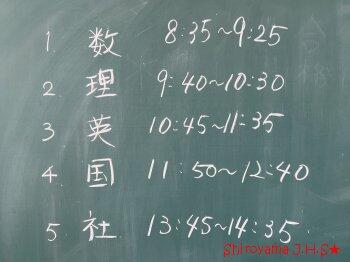 1 数 8:35~9:25
2. 理 9:40~10:30
3 英 10:45~11:35
4. 国 11:50~12:40
5. 社 13:45~14:35.
Shiroyama J.H.S★